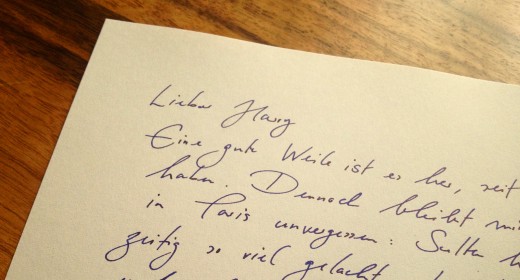 Lieber Harry
Eine gute Weile ist es her, seit
haben. Dennoch bleibt mi
in Paris unvergessen: Selten h
zeitig so viel gelacht